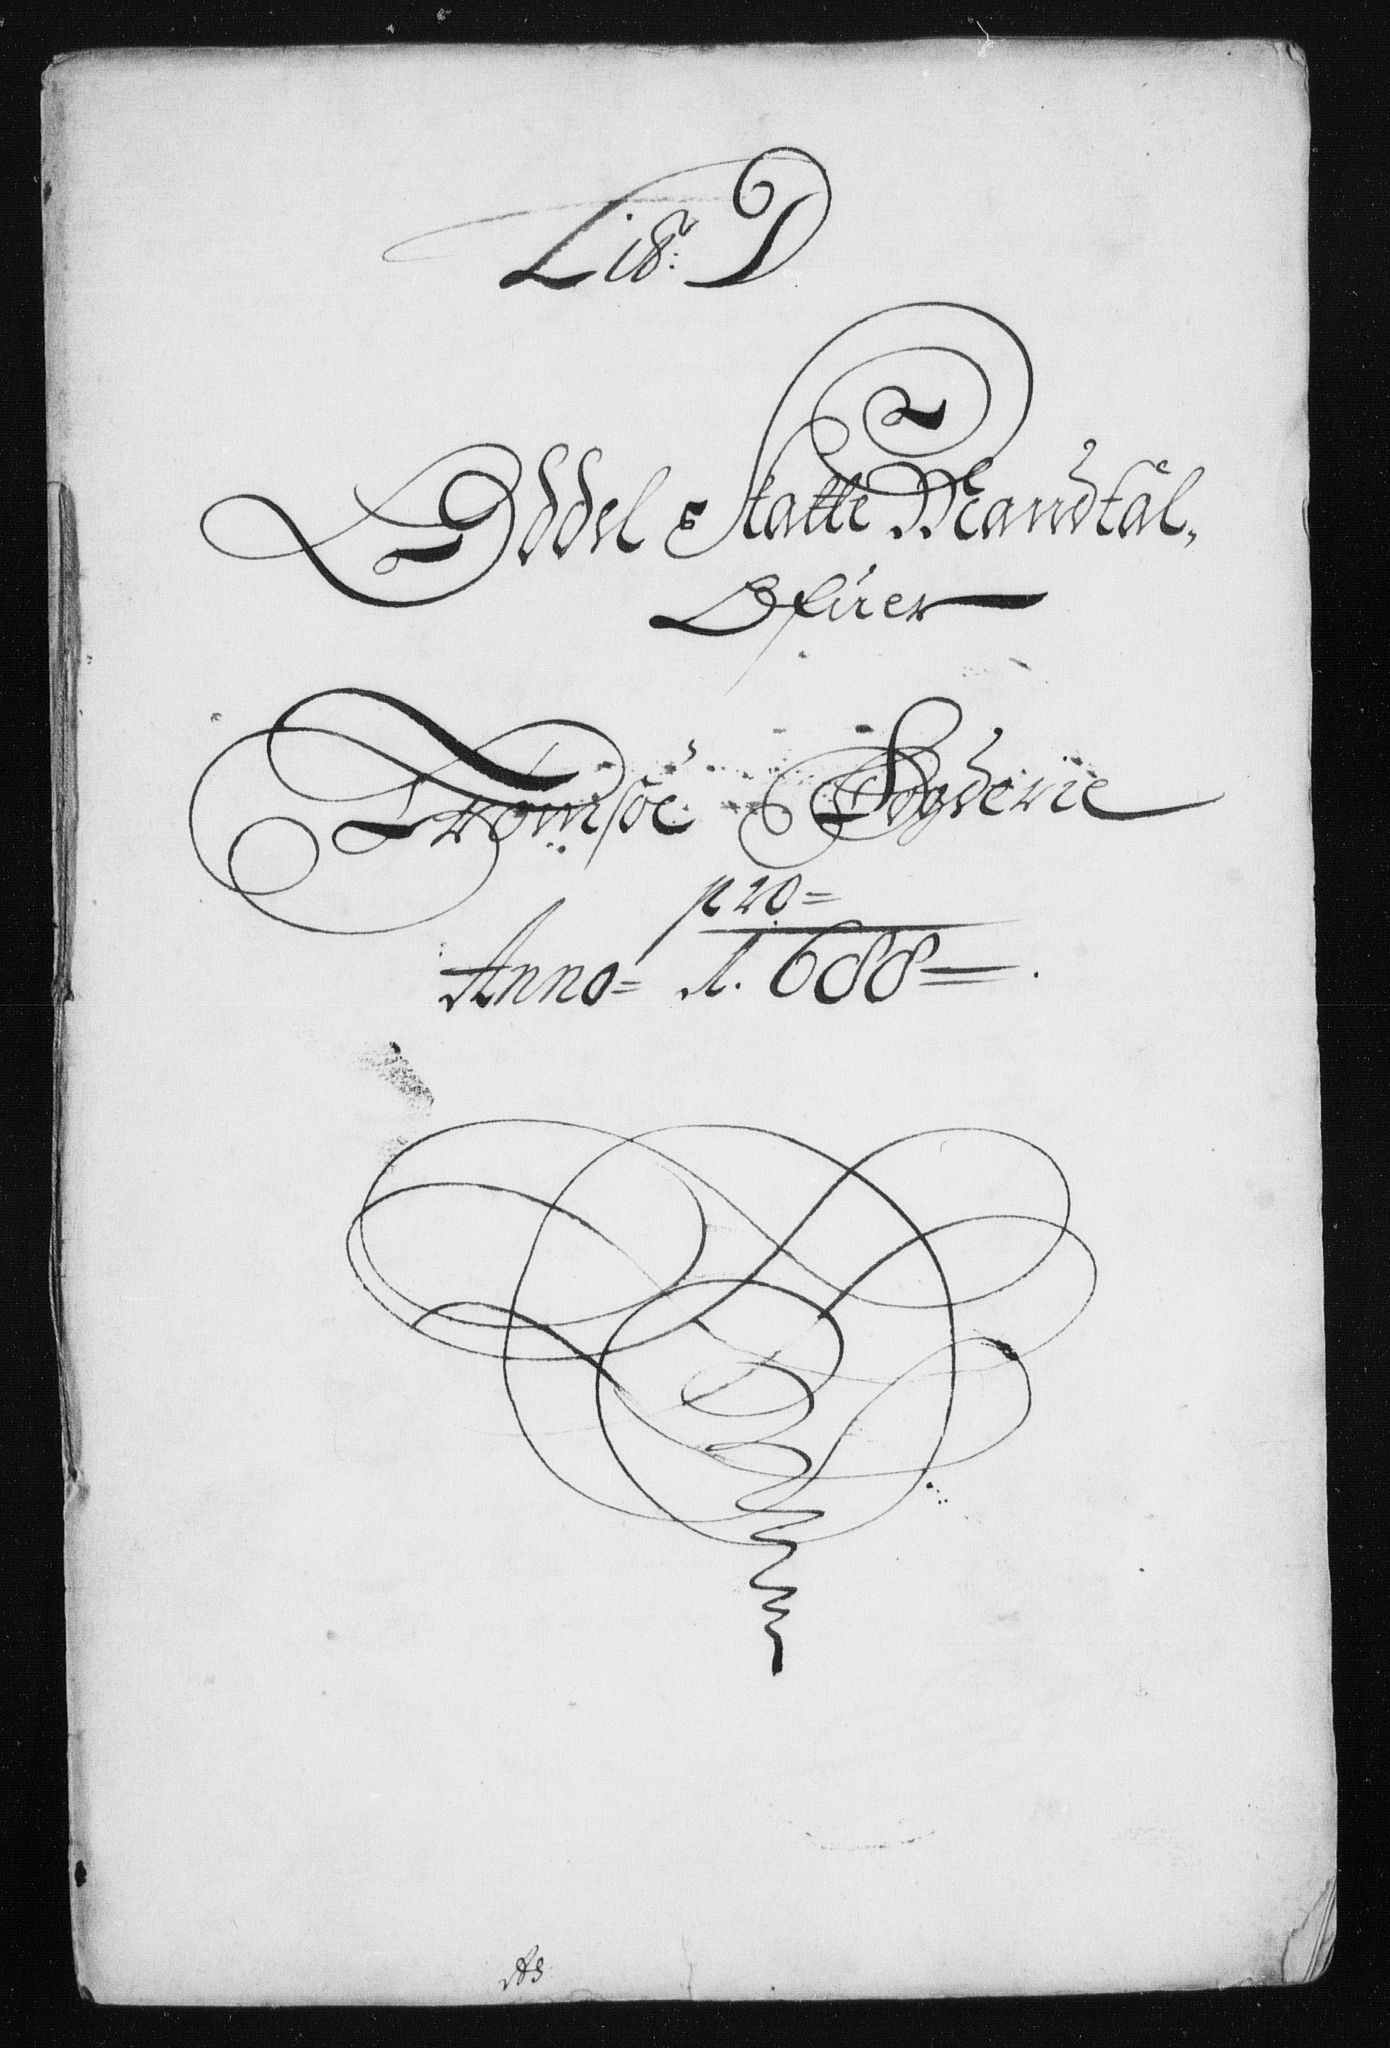 Lit: D
Oddel Skatte Mandtal,
Ofuer
Tromsøe Fogderie
pro=
Anno= 1.688=